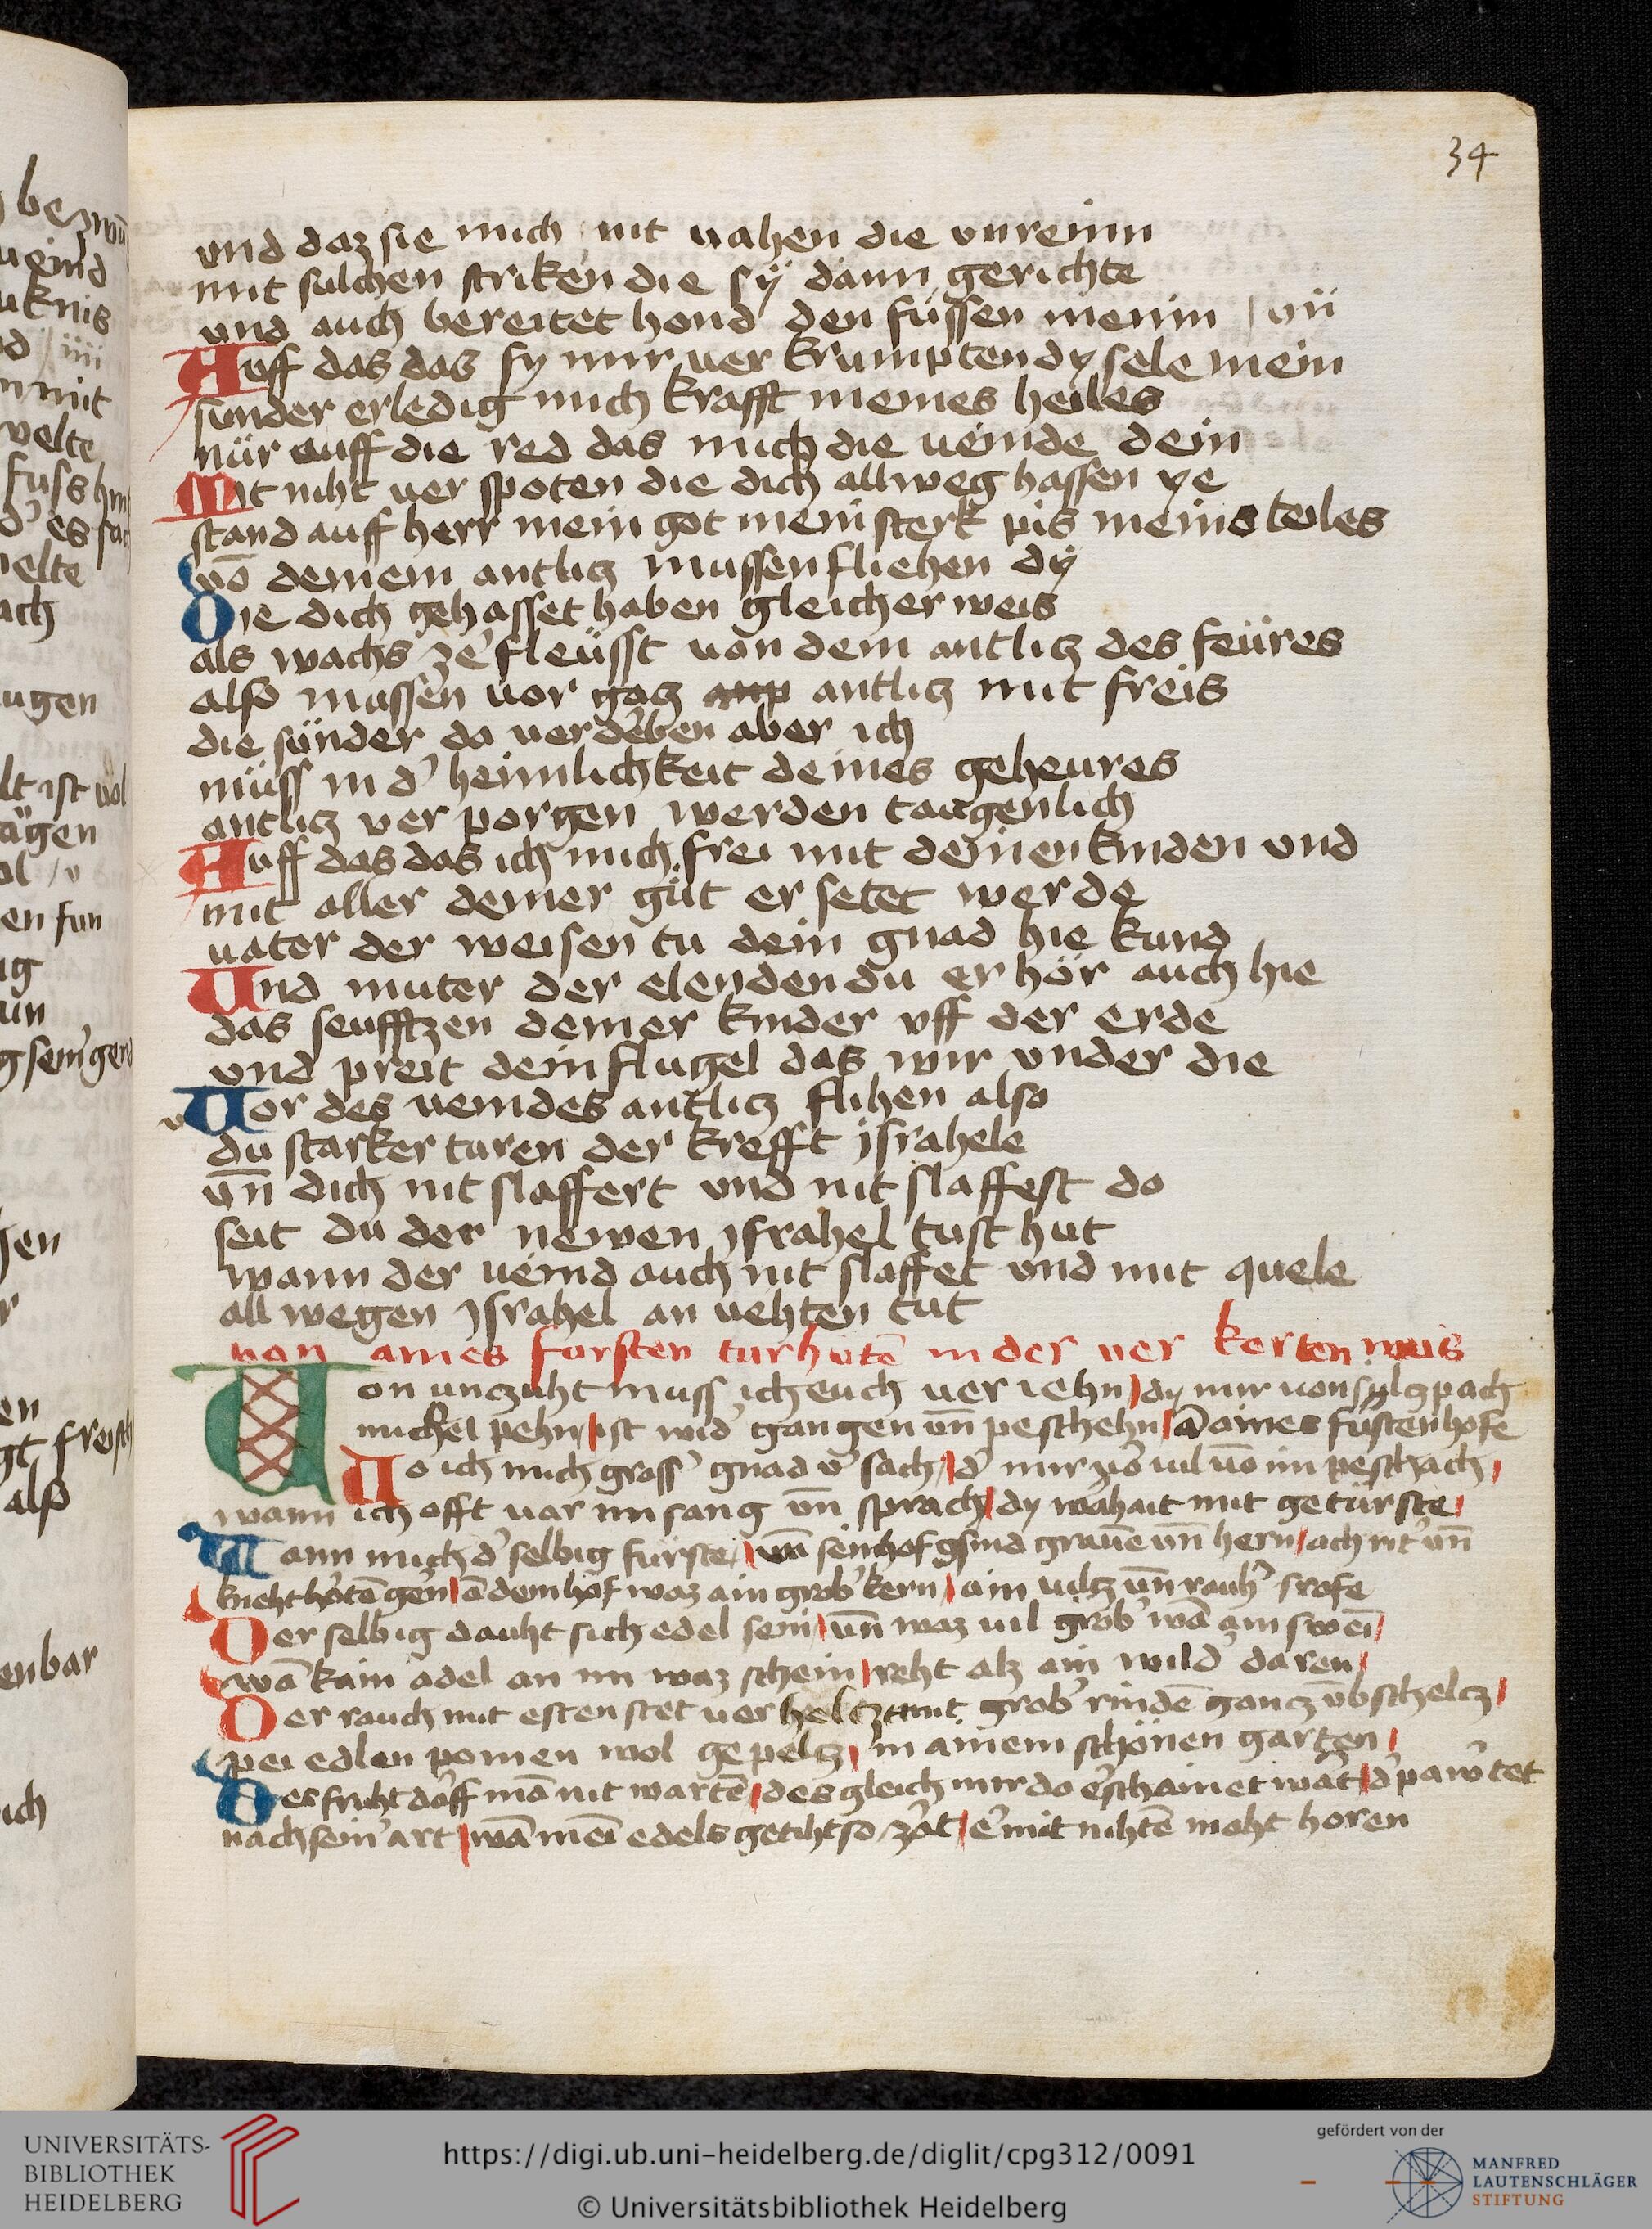 34
vnd daz sie mich nit vahen die vnreinn
mit sulchen striken die sÿ dann gerichte
vnd auch bereitet hond den füssen meinin / vii
Auff das das sy mir uer krumpten dy sele mein
sunder erledig mich krafft meines heiles
nür auff die red das mich die ueinde dein
Mit niht uer spoten die dich allweg hassen ye
stand auff herr mein got mein sterk pis meins teiles
vō deinem antlicz mussen fliehen dÿ
Die dich gehasset haben gleicher weis
als wachs ze fleüsst uon dem antlicz des feüres
also mussen uor gocz antlicz mit freis
die sünder da uerdeben aber ich
müss in d' heimlichkeit deines geheures
antlicz ver porgen werden taugenlich
Auff das das ich mich frei mit deinen kinden vnd
mit aller deiner güt er setet werde
uater der weisen tu dein gnad hie kund
Und muter der elenden du er hör auch hie
das seufftzen deiner kinder vff der erde
vnd preit dein flugel das wir vnder die
Vor des ueindes antlicz flihen also
du starker turen der krefft jsrahele
vn̄ dich nit slaffert vnd nit slaffest do
seit du der newen jsrahel tust hut
wann der ueind auch nit slaffet vnd mit quele
all wegen jsrahel an uehten tut
uon aines fursten turhutē in der uer kerten weis
Von unczuht muss ich euch uer iehn / dy mir uon sylczpach
michel pehn / ist wid' gangen vn̄ peschehn / ā aines fürstenhofe
Do ich mich gross' gnad v' sach / d' mir zuo uil vō im peschach /
wann ich offt uar im sang vn̄ sprach / dy wahait mit getürste /
Wann mich d' selbig fürste / vn̄ sein hofgsind grauē vn̄ hern / ach rit' vn̄
kneht hōtē gern / ā dem hof waz ain grob' kern / ain uilcz vn̄ rauh' srofe
Der selbig dauht sich edel sein / vn̄ waz uil grob' wā ain swei /
wā kain adel an im waz schein / reht alz ain wild' daren /
Der rauch mit esten stet uer helczt mit grob' rindē gancz vb schelcz /
pei edlen pomen wol gepelcz / in ainem schönen garten /
Des fruht dörff mā nit wartē / des gleich mir do erschainet wart / d' pawr tet
nach sein' art / wā mei edels getiht so zart / er mit nihtē moht horen
UNIVERSITÄTS-
BIBLIOTHEK
HEIDELBERG
https://digi.ub.uni-heidelberg.de/diglit/cpg312/0091
© Universitätsbibliothek Heidelberg
gefördert von der
MANFRED
LAUTENSCHLÄGER
STIFTUNG